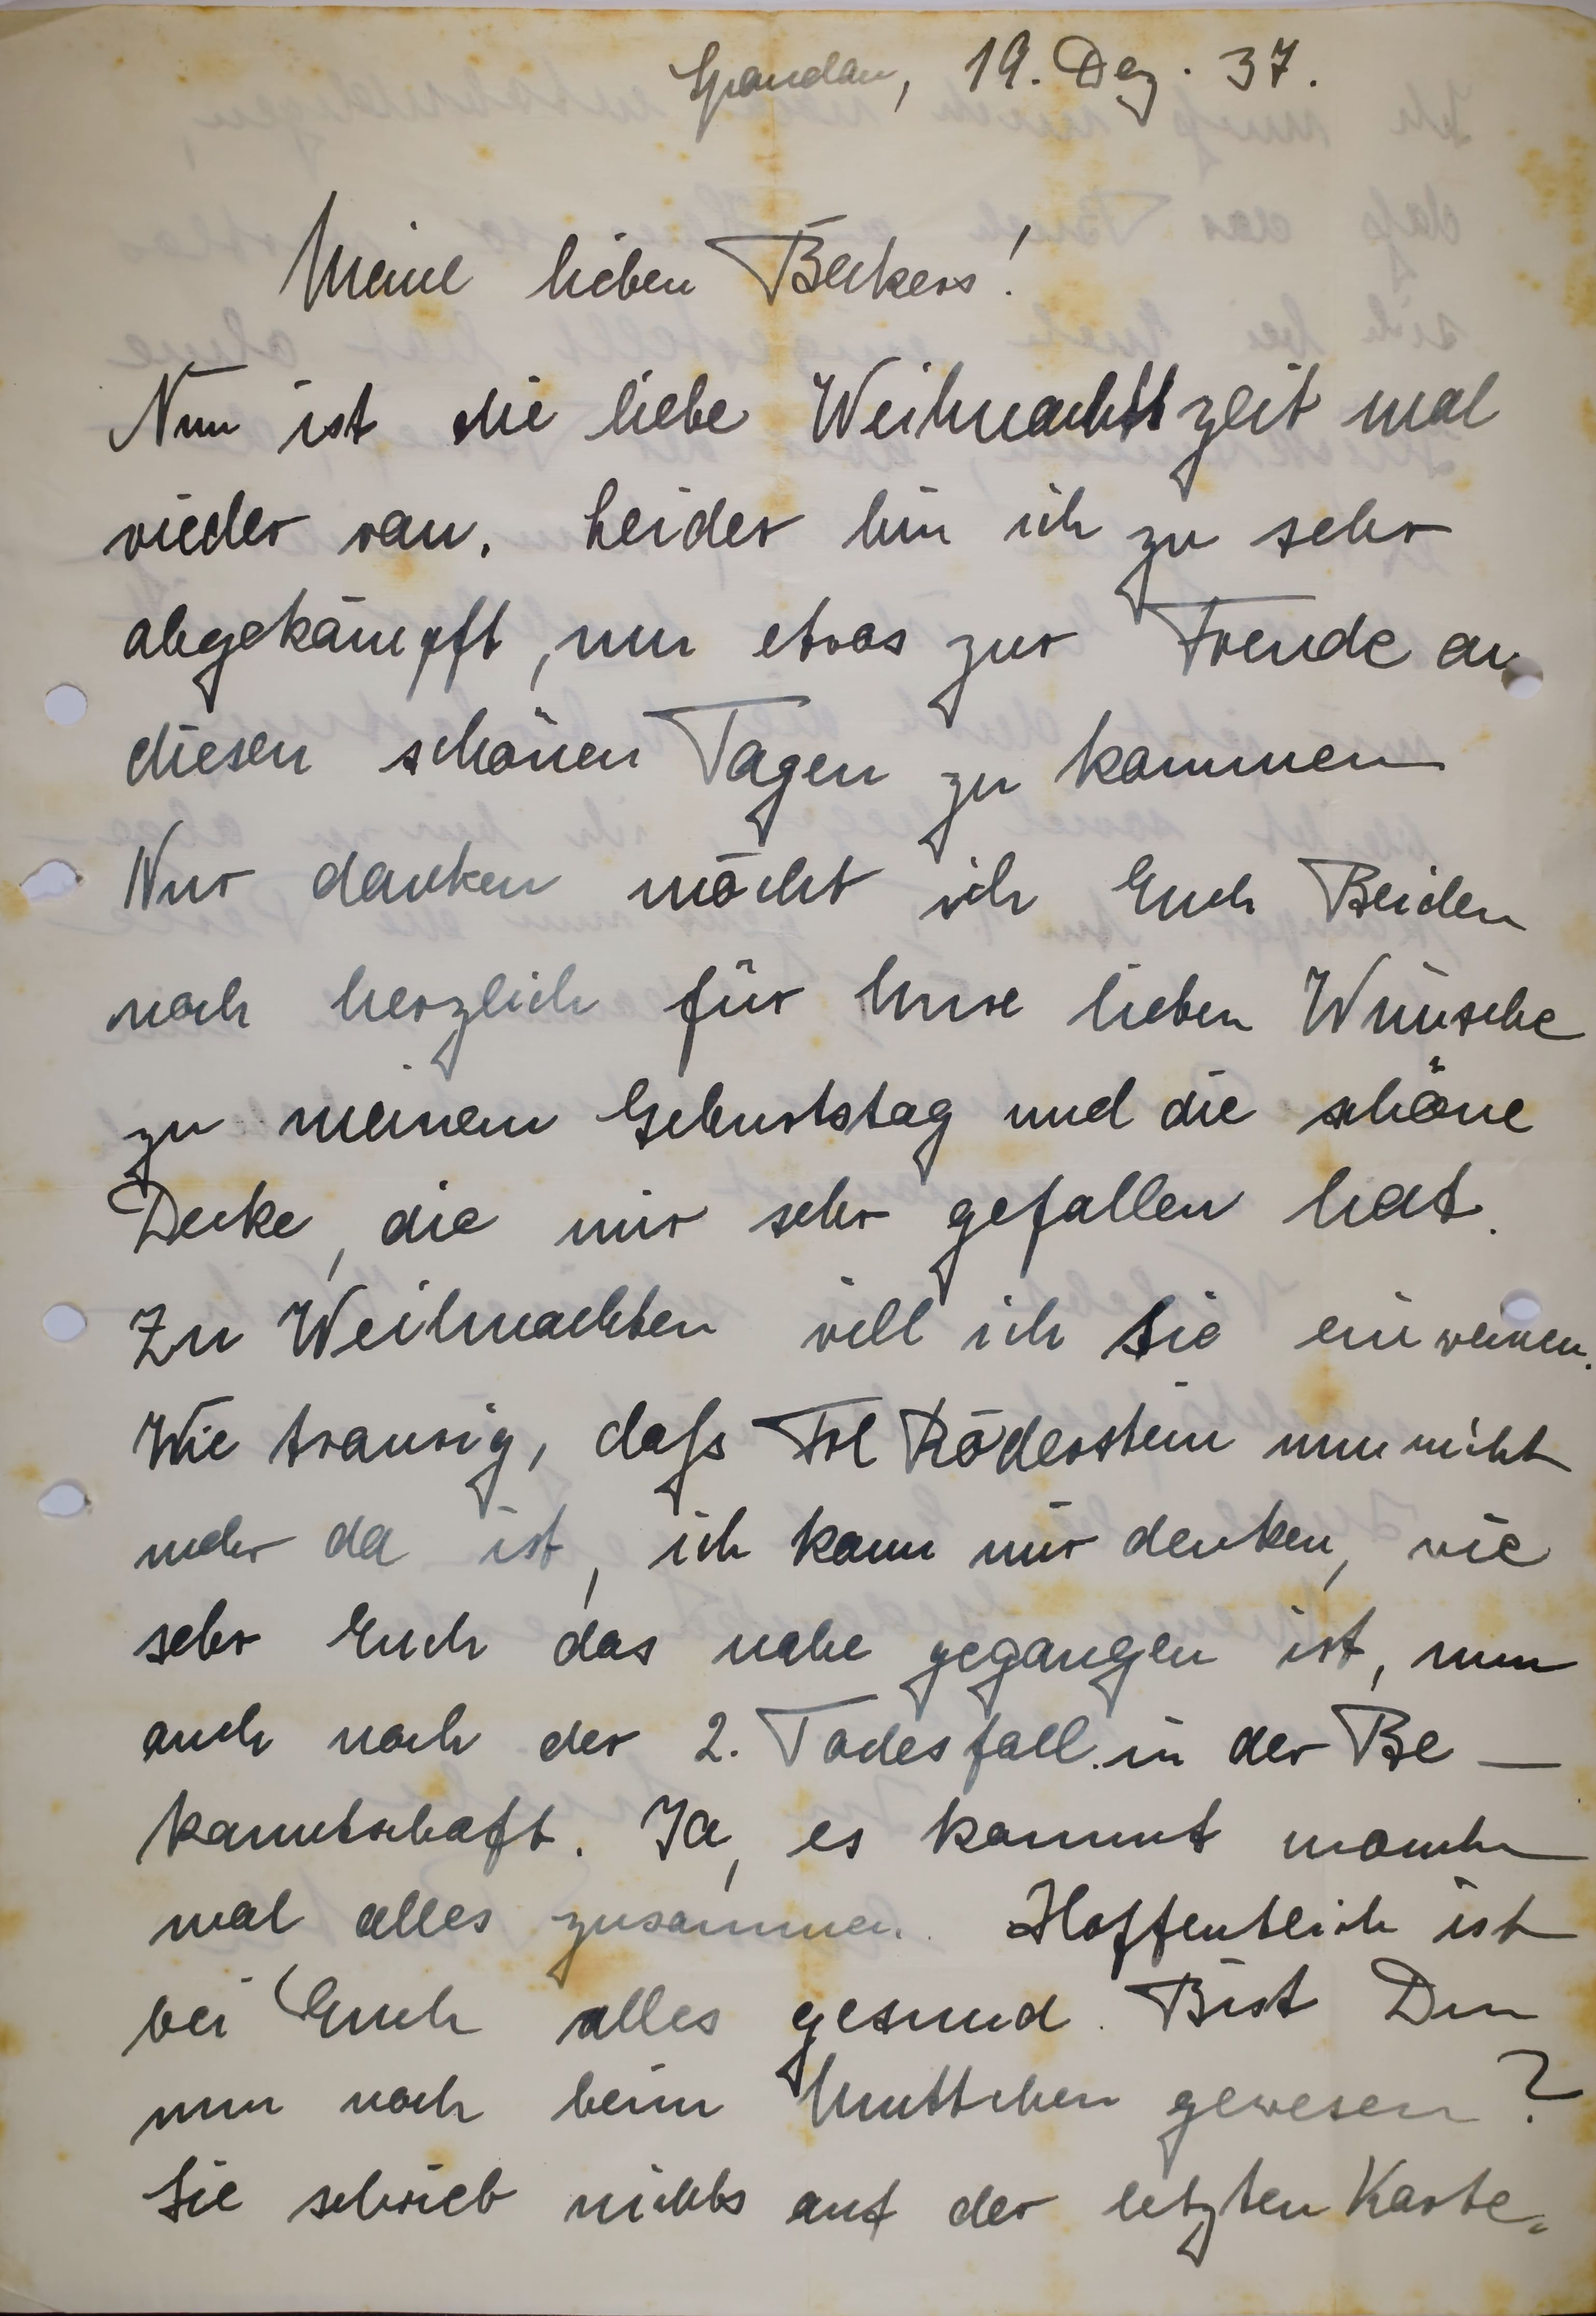 Spandau, 19. Dez. 37.
Meine lieben Beckers!
Nun ist die liebe Weihnachtszeit mal
wieder ran. Leider bin ich zu sehr
abgekämpft, um etwas zur Freude an
diesen schönen Tagen zu kommen
Nur danken möcht ich Euch Beiden
noch herzlich für Eure lieben Wünsche
zu meinem Geburtstag und die schöne
Decke, die mir sehr gefallen hat.
Zu Weihnachten will ich sie einweihen.
Wie traurig, daß Frl Röderstein nun nicht
mehr da ist, ich kann mir denken, wie
sehr Euch das nahe gegangen ist, nun
auch noch der 2. Todesfall in der Be-
kanntschaft. Ja, es kommt manch
mal alles zusammen. Hoffentlich ist
bei Euch alles gesund. Bist Du
nun noch beim Muttchen gewesen?
Sie schrieb nichts auf der letzten Karte.